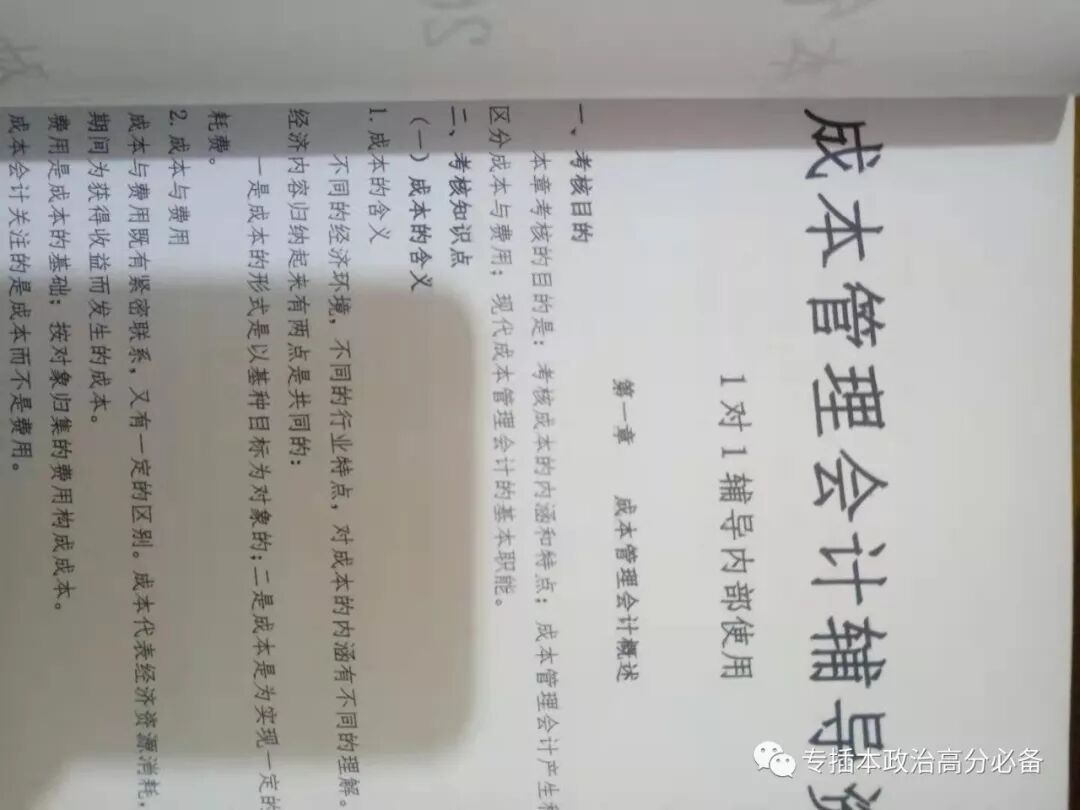 成本管理会计辅导资
1对1辅导内部使用
第一章 成本管理会计概述
一、考核目的
本章考核的目的是：考核成本的内涵和特点；成本管理会计产生和
区分成本与费用；现代成本管理会计的基本职能。
二、考核知识点
（一）成本的含义
1.成本的含义
不同的经济环境，不同的行业特点，对成本的内涵有不同的理解。
经济内容归纳起来有两点是共同的：
一是成本的形式是以某种目标为对象的；二是成本是为实现一定的
耗费。
2.成本与费用
成本与费用既有紧密联系，又有一定的区别。成本代表经济资源消耗，
期间为获得收益而发生的成本。
费用是成本的基础；按对象归集的费用构成成本。
成本会计关注的是成本而不是费用。
专插本政治高分必备